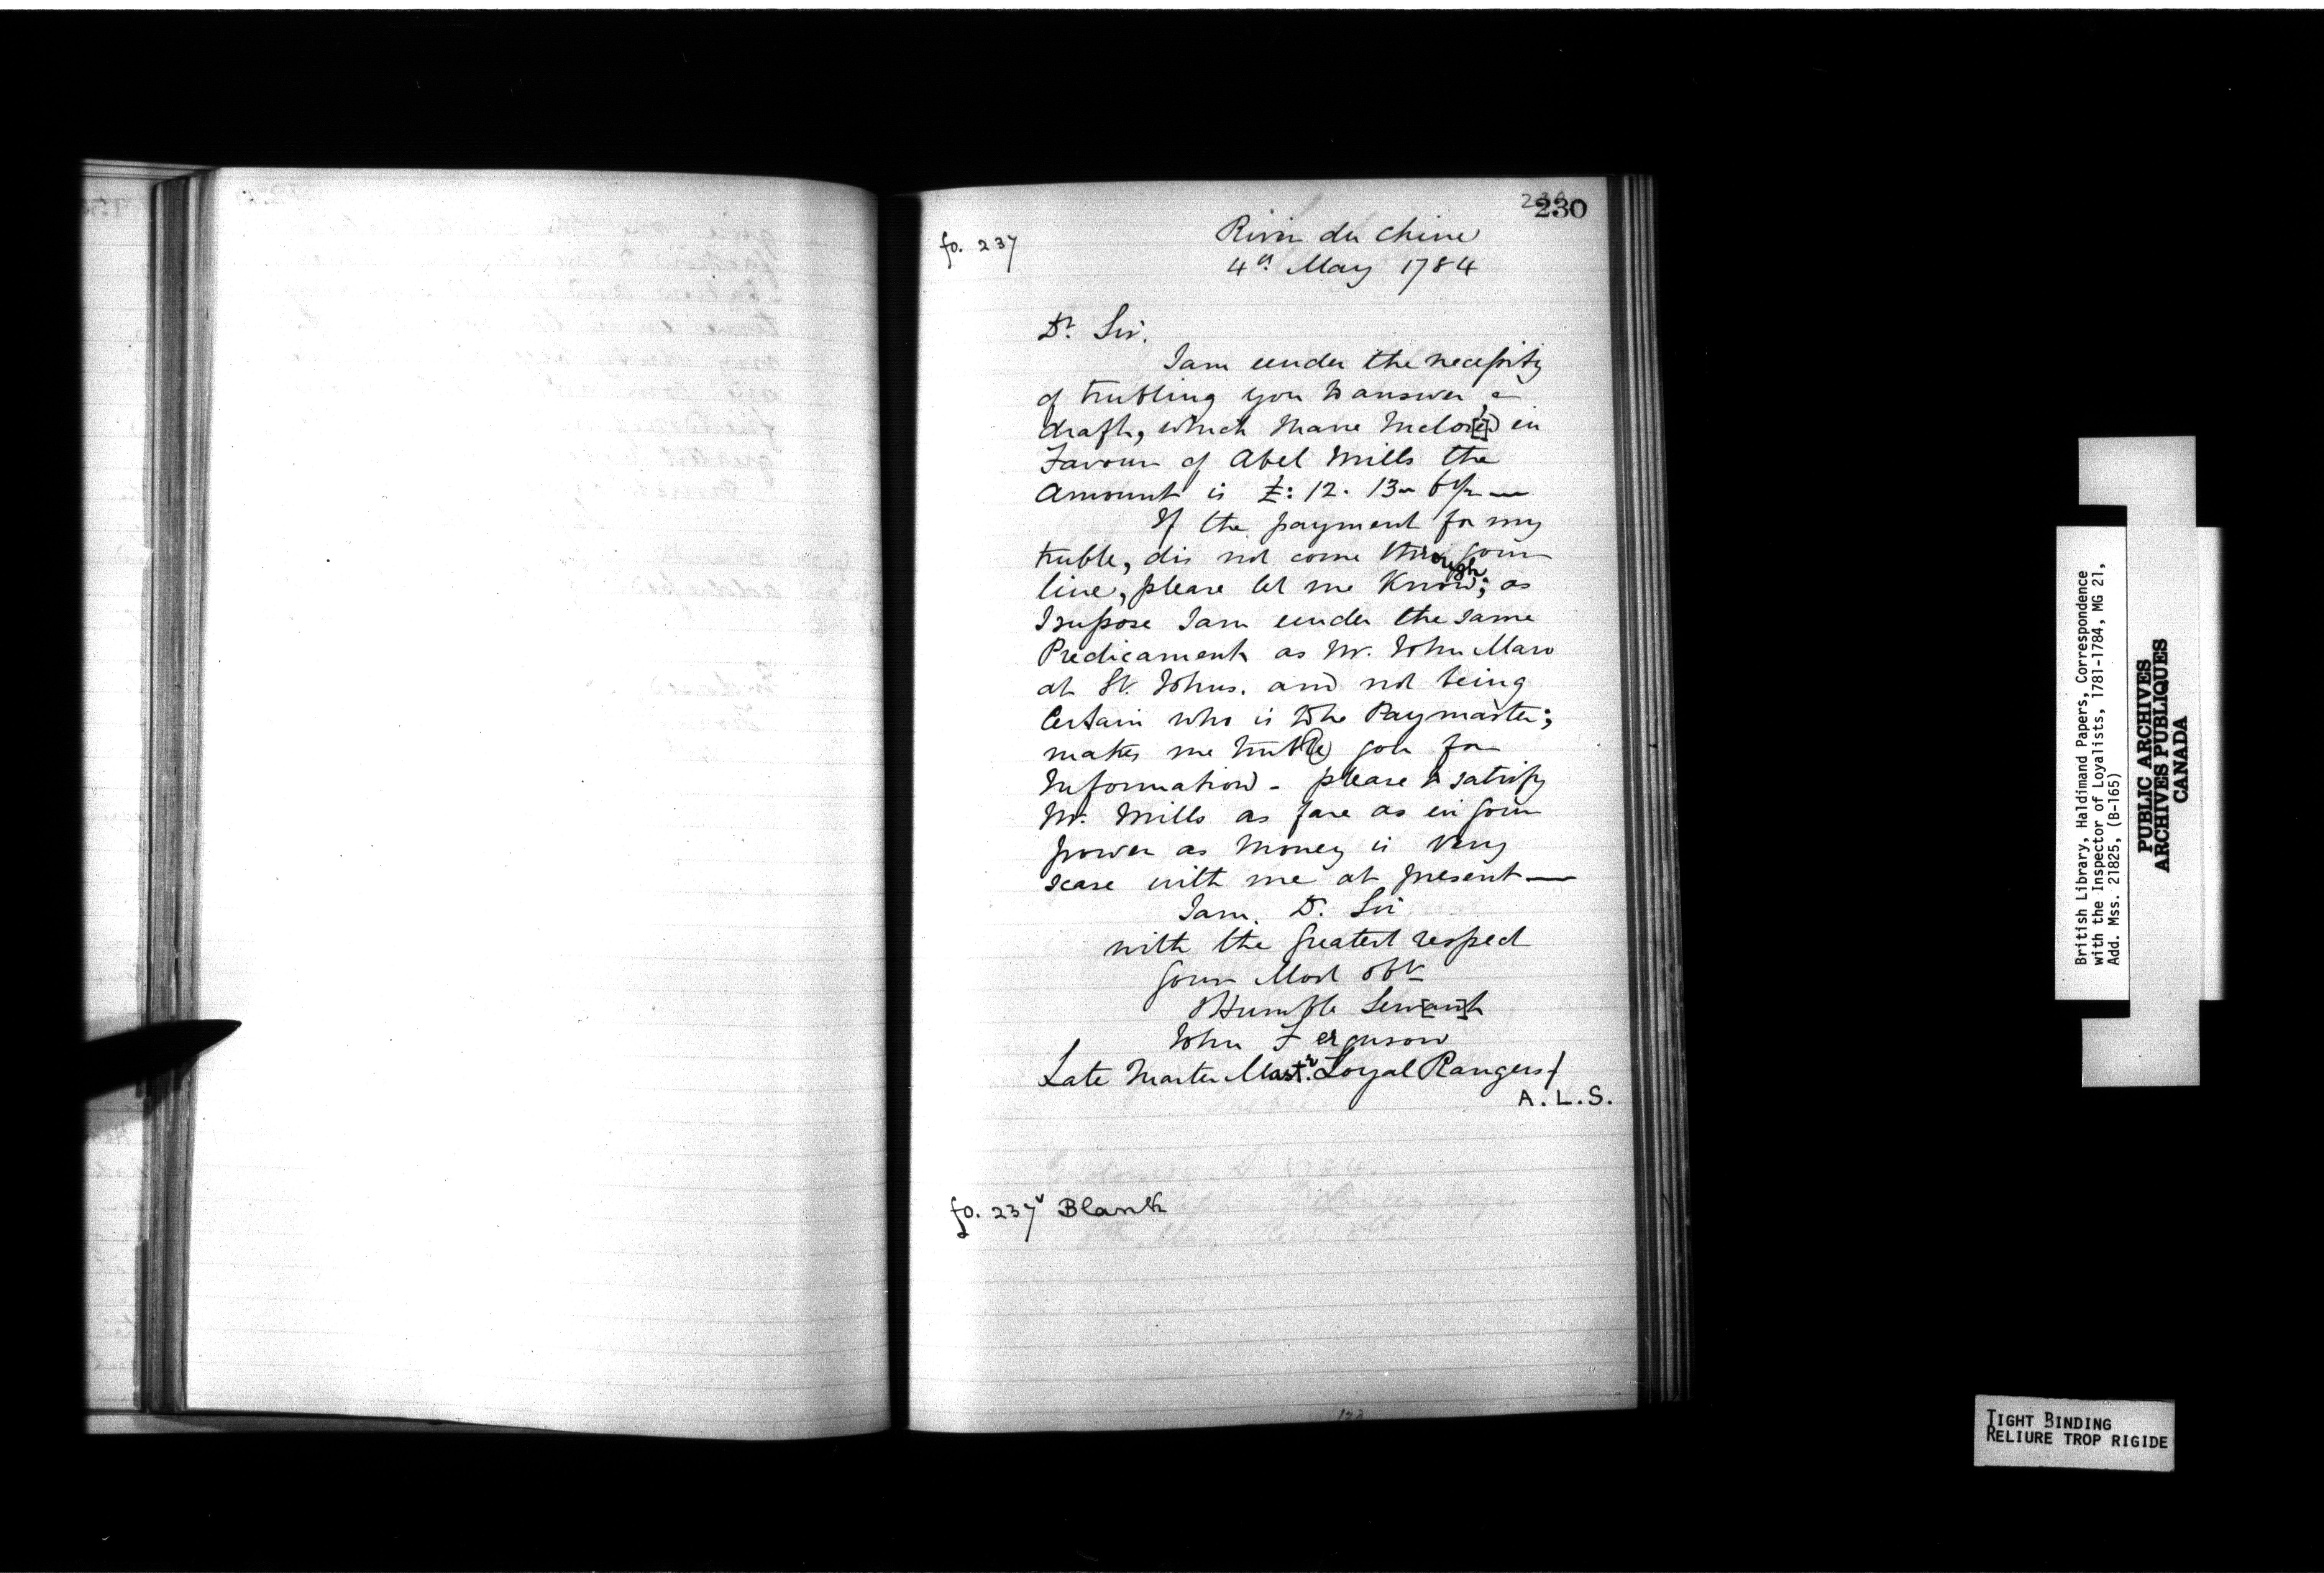 230
fo. 237
Rivir du Chine
4th May 1784
Dr. Sir.
I am under the necessity
of trubling you to answer a
draft, which Have Inclos[e]d in
Favour of Abel Mills the
Amount is £: 12. 13
If the payment for my
truble, dis not come through your
line, please let me Know; as
I supose I am under the same
Predicament as Mr. John Maro
at St. Johns. and not being
Certain who is the Paymaster;
makes me truble you for
Information - please to satisfy
Mr. Mills as fare as in your
power as Money is Very
scase with me at present —
I am. D. Sir
with the Greatest respect
your Most obt
Humble Serv[an]t
John Ferguson
Late Master Loyal Rangers
A.L.S.
fo. 237v Blank
British Library, Haldimand Papers, Correspondence
with the Inspector of Loyalists, 1781-1784, MG 21,
Add. Mss. 21825, (B-165)
PUBLIC ARCHIVES
ARCHIVES PUBLIQUES
CANADA
TIGHT BINDING
RELIURE TROP RIGIDE